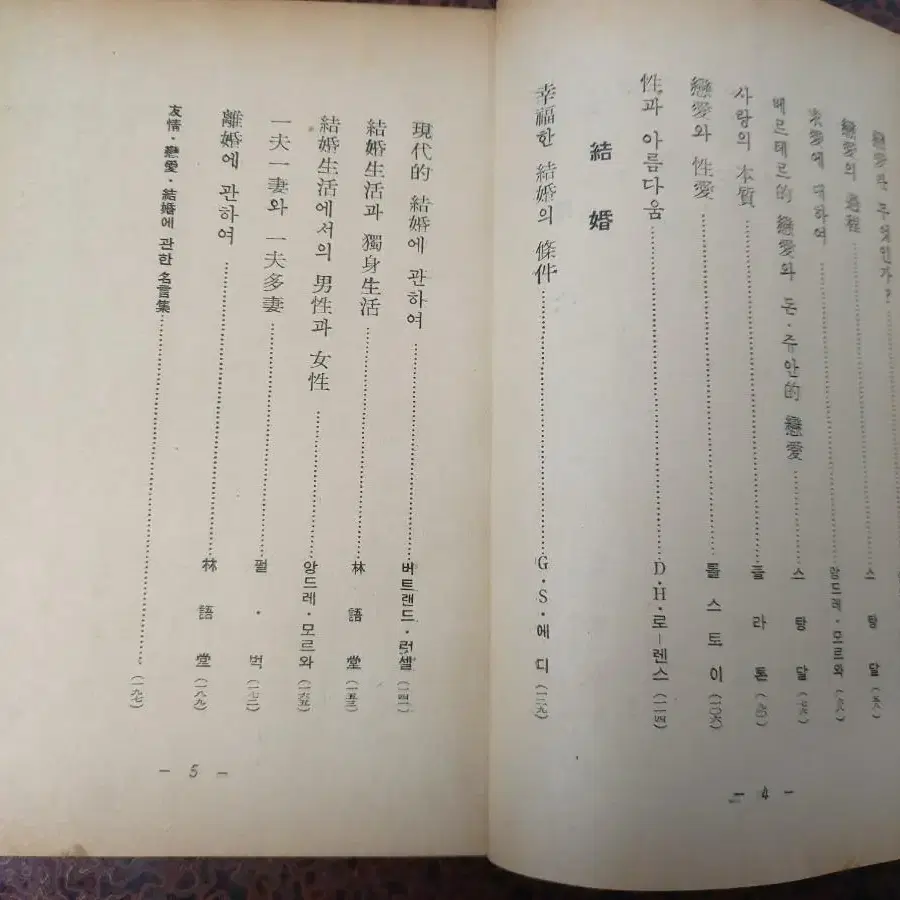 戀愛란 무엇인가?
戀愛의 過程 스탕달
앙드레·모르와
베르테르的 戀愛와 돈·쥬안的 戀愛 스탕달
사랑의 本質 플라톤
戀愛와 性愛 톨스토이 (一〇六)
性과 아름다움 D·H·로ー렌스 (一一四)
結婚
幸福한 結婚의 條件 G·S·에디 (一二九)
- 4 -
現代的 結婚에 관하여 버트랜드·런셀 (一四一)
結婚生活과 獨身生活 林語堂 (一五三)
結婚生活에서의 男性과 女性 앙드레·모르와 (一六五)
一夫一妻와 一夫多妻 펄·벅 (一七二)
離婚에 관하여 林語堂 (一八九)
友情·戀愛·結婚에 관한 名言集 (一九七)
- 5 -